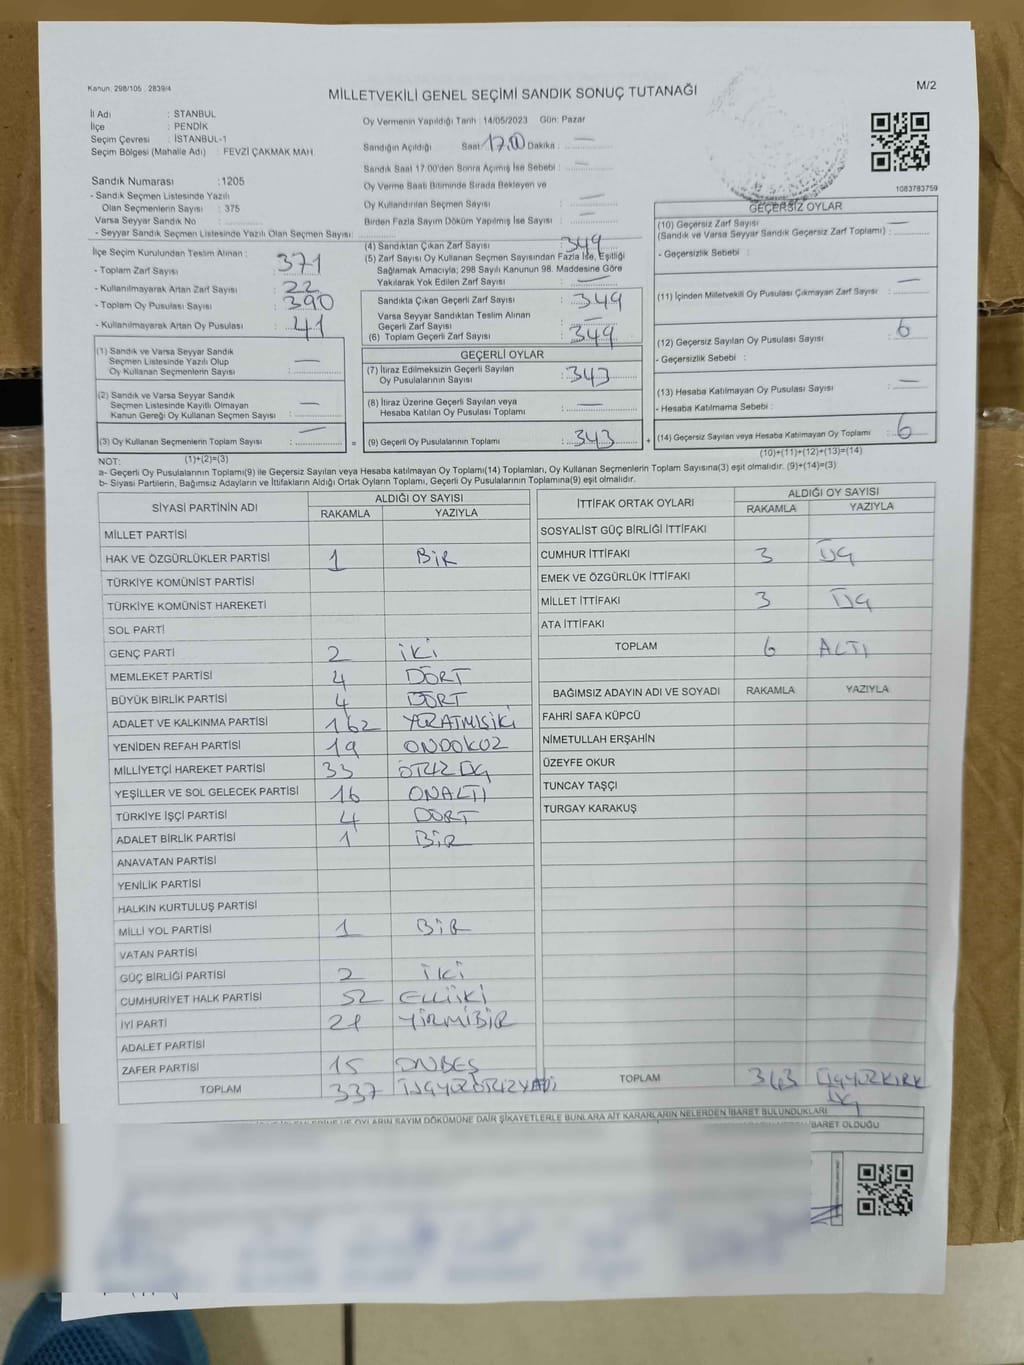 Kanun: 298/105 , 2839/4
MİLLETVEKİLİ GENEL SEÇİMİ SANDIK SONUÇ TUTANAĞI
M/2
İl Adı : STANBUL
İlçe : PENDİK
Seçim Çevresi : İSTANBUL-1
Seçim Bölgesi (Mahalle Adı) : FEVZİ ÇAKMAK MAH.
Sandık Numarası :1205
- Sandık Seçmen Listesinde Yazılı
Olan Seçmenlerin Sayısı : 375
Varsa Seyyar Sandık No :
- Seyyar Sandık Seçmen Listesinde Yazılı Olan Seçmen Sayısı:
Oy Vermenin Yapıldığı Tarih : 14/05/2023 Gün: Pazar
Sandığın Açıldığı Saat 17.00 Dakika : —
Sandık Saat 17.00'den Sonra Açılmış İse Sebebi : —
Oy Verme Saati Bitiminde Sırada Bekleyen ve
Oy Kullandırılan Seçmen Sayısı : —
Birden Fazla Sayım Döküm Yapılmış İse Sayısı : —
1083783759
İlçe Seçim Kurulundan Teslim Alınan :
- Toplam Zarf Sayısı : 371
- Kullanılmayarak Artan Zarf Sayısı : 22
- Toplam Oy Pusulası Sayısı : 390
- Kullanılmayarak Artan Oy Pusulası : 41
(1) Sandık ve Varsa Seyyar Sandık
Seçmen Listesinde Yazılı Olup
Oy Kullanan Seçmenlerin Sayısı : —
(2) Sandık ve Varsa Seyyar Sandık
Seçmen Listesinde Kayıtlı Olmayan
Kanun Gereği Oy Kullanan Seçmen Sayısı : —
(3) Oy Kullanan Seçmenlerin Toplam Sayısı : —
(4) Sandıktan Çıkan Zarf Sayısı : 349
(5) Zarf Sayısı Oy Kullanan Seçmen Sayısından Fazla İse, Eşitliği
Sağlamak Amacıyla; 298 Sayılı Kanunun 98. Maddesine Göre
Yakılarak Yok Edilen Zarf Sayısı : —
Sandıkta Çıkan Geçerli Zarf Sayısı : 349
Varsa Seyyar Sandıktan Teslim Alınan
Geçerli Zarf Sayısı : —
(6) Toplam Geçerli Zarf Sayısı : 349
GEÇERLİ OYLAR
(7) İtiraz Edilmeksizin Geçerli Sayılan
Oy Pusulalarının Sayısı : 343
(8) İtiraz Üzerine Geçerli Sayılan veya
Hesaba Katılan Oy Pusulası Toplamı : —
= (9) Geçerli Oy Pusulalarının Toplamı : 343 +
GEÇERSİZ OYLAR
(10) Geçersiz Zarf Sayısı —
(Sandık ve Varsa Seyyar Sandık Geçersiz Zarf Toplamı) :
- Geçersizlik Sebebi :
(11) İçinden Milletvekili Oy Pusulası Çıkmayan Zarf Sayısı : —
(12) Geçersiz Sayılan Oy Pusulası Sayısı : 6
- Geçersizlik Sebebi :
(13) Hesaba Katılmayan Oy Pusulası Sayısı : —
- Hesaba Katılmama Sebebi :
(14) Geçersiz Sayılan veya Hesaba Katılmayan Oy Toplamı : 6
NOT: (1)+(2)=(3)
(10)+(11)+(12)+(13)=(14)
a- Geçerli Oy Pusulalarının Toplamı(9) ile Geçersiz Sayılan veya Hesaba katılmayan Oy Toplamı(14) Toplamları, Oy Kullanan Seçmenlerin Toplam Sayısına(3) eşit olmalıdır. (9)+(14)=(3)
b- Siyasi Partilerin, Bağımsız Adayların ve İttifakların Aldığı Ortak Oyların Toplamı, Geçerli Oy Pusulalarının Toplamına(9) eşit olmalıdır.
SİYASİ PARTİNİN ADI ALDIĞI OY SAYISI
RAKAMLA YAZIYLA
MİLLET PARTİSİ
HAK VE ÖZGÜRLÜKLER PARTİSİ 1 BİR
TÜRKİYE KOMÜNİST PARTİSİ
TÜRKİYE KOMÜNİST HAREKETİ
SOL PARTİ
GENÇ PARTİ 2 İKİ
MEMLEKET PARTİSİ 4 DÖRT
BÜYÜK BİRLİK PARTİSİ 4 DÖRT
ADALET VE KALKINMA PARTİSİ 162 YÜZATMIŞİKİ
YENİDEN REFAH PARTİSİ 19 ONDOKUZ
MİLLİYETÇİ HAREKET PARTİSİ 33 OTUZ ÜÇ
YEŞİLLER VE SOL GELECEK PARTİSİ 16 ONALTI
TÜRKİYE İŞÇİ PARTİSİ 4 DÖRT
ADALET BİRLİK PARTİSİ 1 BİR
ANAVATAN PARTİSİ
YENİLİK PARTİSİ
HALKIN KURTULUŞ PARTİSİ
MİLLİ YOL PARTİSİ 1 BİR
VATAN PARTİSİ
GÜÇ BİRLİĞİ PARTİSİ 2 İKİ
CUMHURİYET HALK PARTİSİ 52 ELLİİKİ
İYİ PARTİ 21 YİRMİBİR
ADALET PARTİSİ
ZAFER PARTİSİ 15 ONBEŞ
TOPLAM 337 ÜÇYÜZOTUZYEDİ
İTTİFAK ORTAK OYLARI ALDIĞI OY SAYISI
RAKAMLA YAZIYLA
SOSYALİST GÜÇ BİRLİĞİ İTTİFAKI
CUMHUR İTTİFAKI 3 ÜÇ
EMEK VE ÖZGÜRLÜK İTTİFAKI
MİLLET İTTİFAKI 3 ÜÇ
ATA İTTİFAKI
TOPLAM 6 ALTI
BAĞIMSIZ ADAYIN ADI VE SOYADI RAKAMLA YAZIYLA
FAHRİ SAFA KÜPCÜ
NİMETULLAH ERŞAHİN
ÜZEYFE OKUR
TUNCAY TAŞÇI
TURGAY KARAKUŞ
TOPLAM 343 ÜÇYÜZKIRK
ÜÇ
OYLARIN SAYIM DÖKÜMÜNE DAİR ŞİKAYETLERLE BUNLARA AİT KARARLARIN NELERDEN İBARET BULUNDUKLARI
BARET OLDUĞU